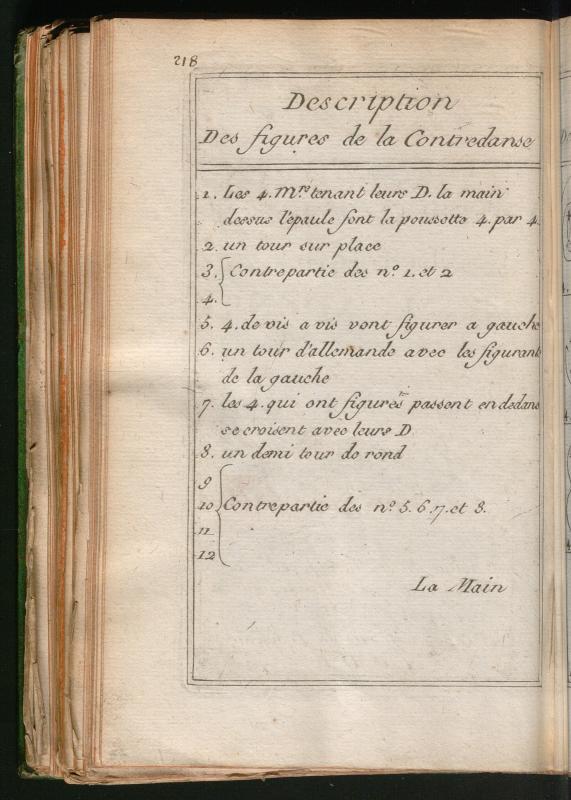 218
Description
Des figures de la Contredanse
1. Les 4. Mrs tenant leurs D. la main
dessus l'épaule font la poussette 4. par 4.
2. un tour sur place
3. Contrepartie des no. 1. et 2
4.
5. 4. de vis a vis vont figurer a gauche
6. un tour d'allemande avec les figurants
de la gauche
7. les 4. qui ont figurés passent en dedans
se croisent avec leurs D
8. un demi tour de rond
9
10 Contrepartie des no. 5. 6. 7. et 8.
11
12
La Main